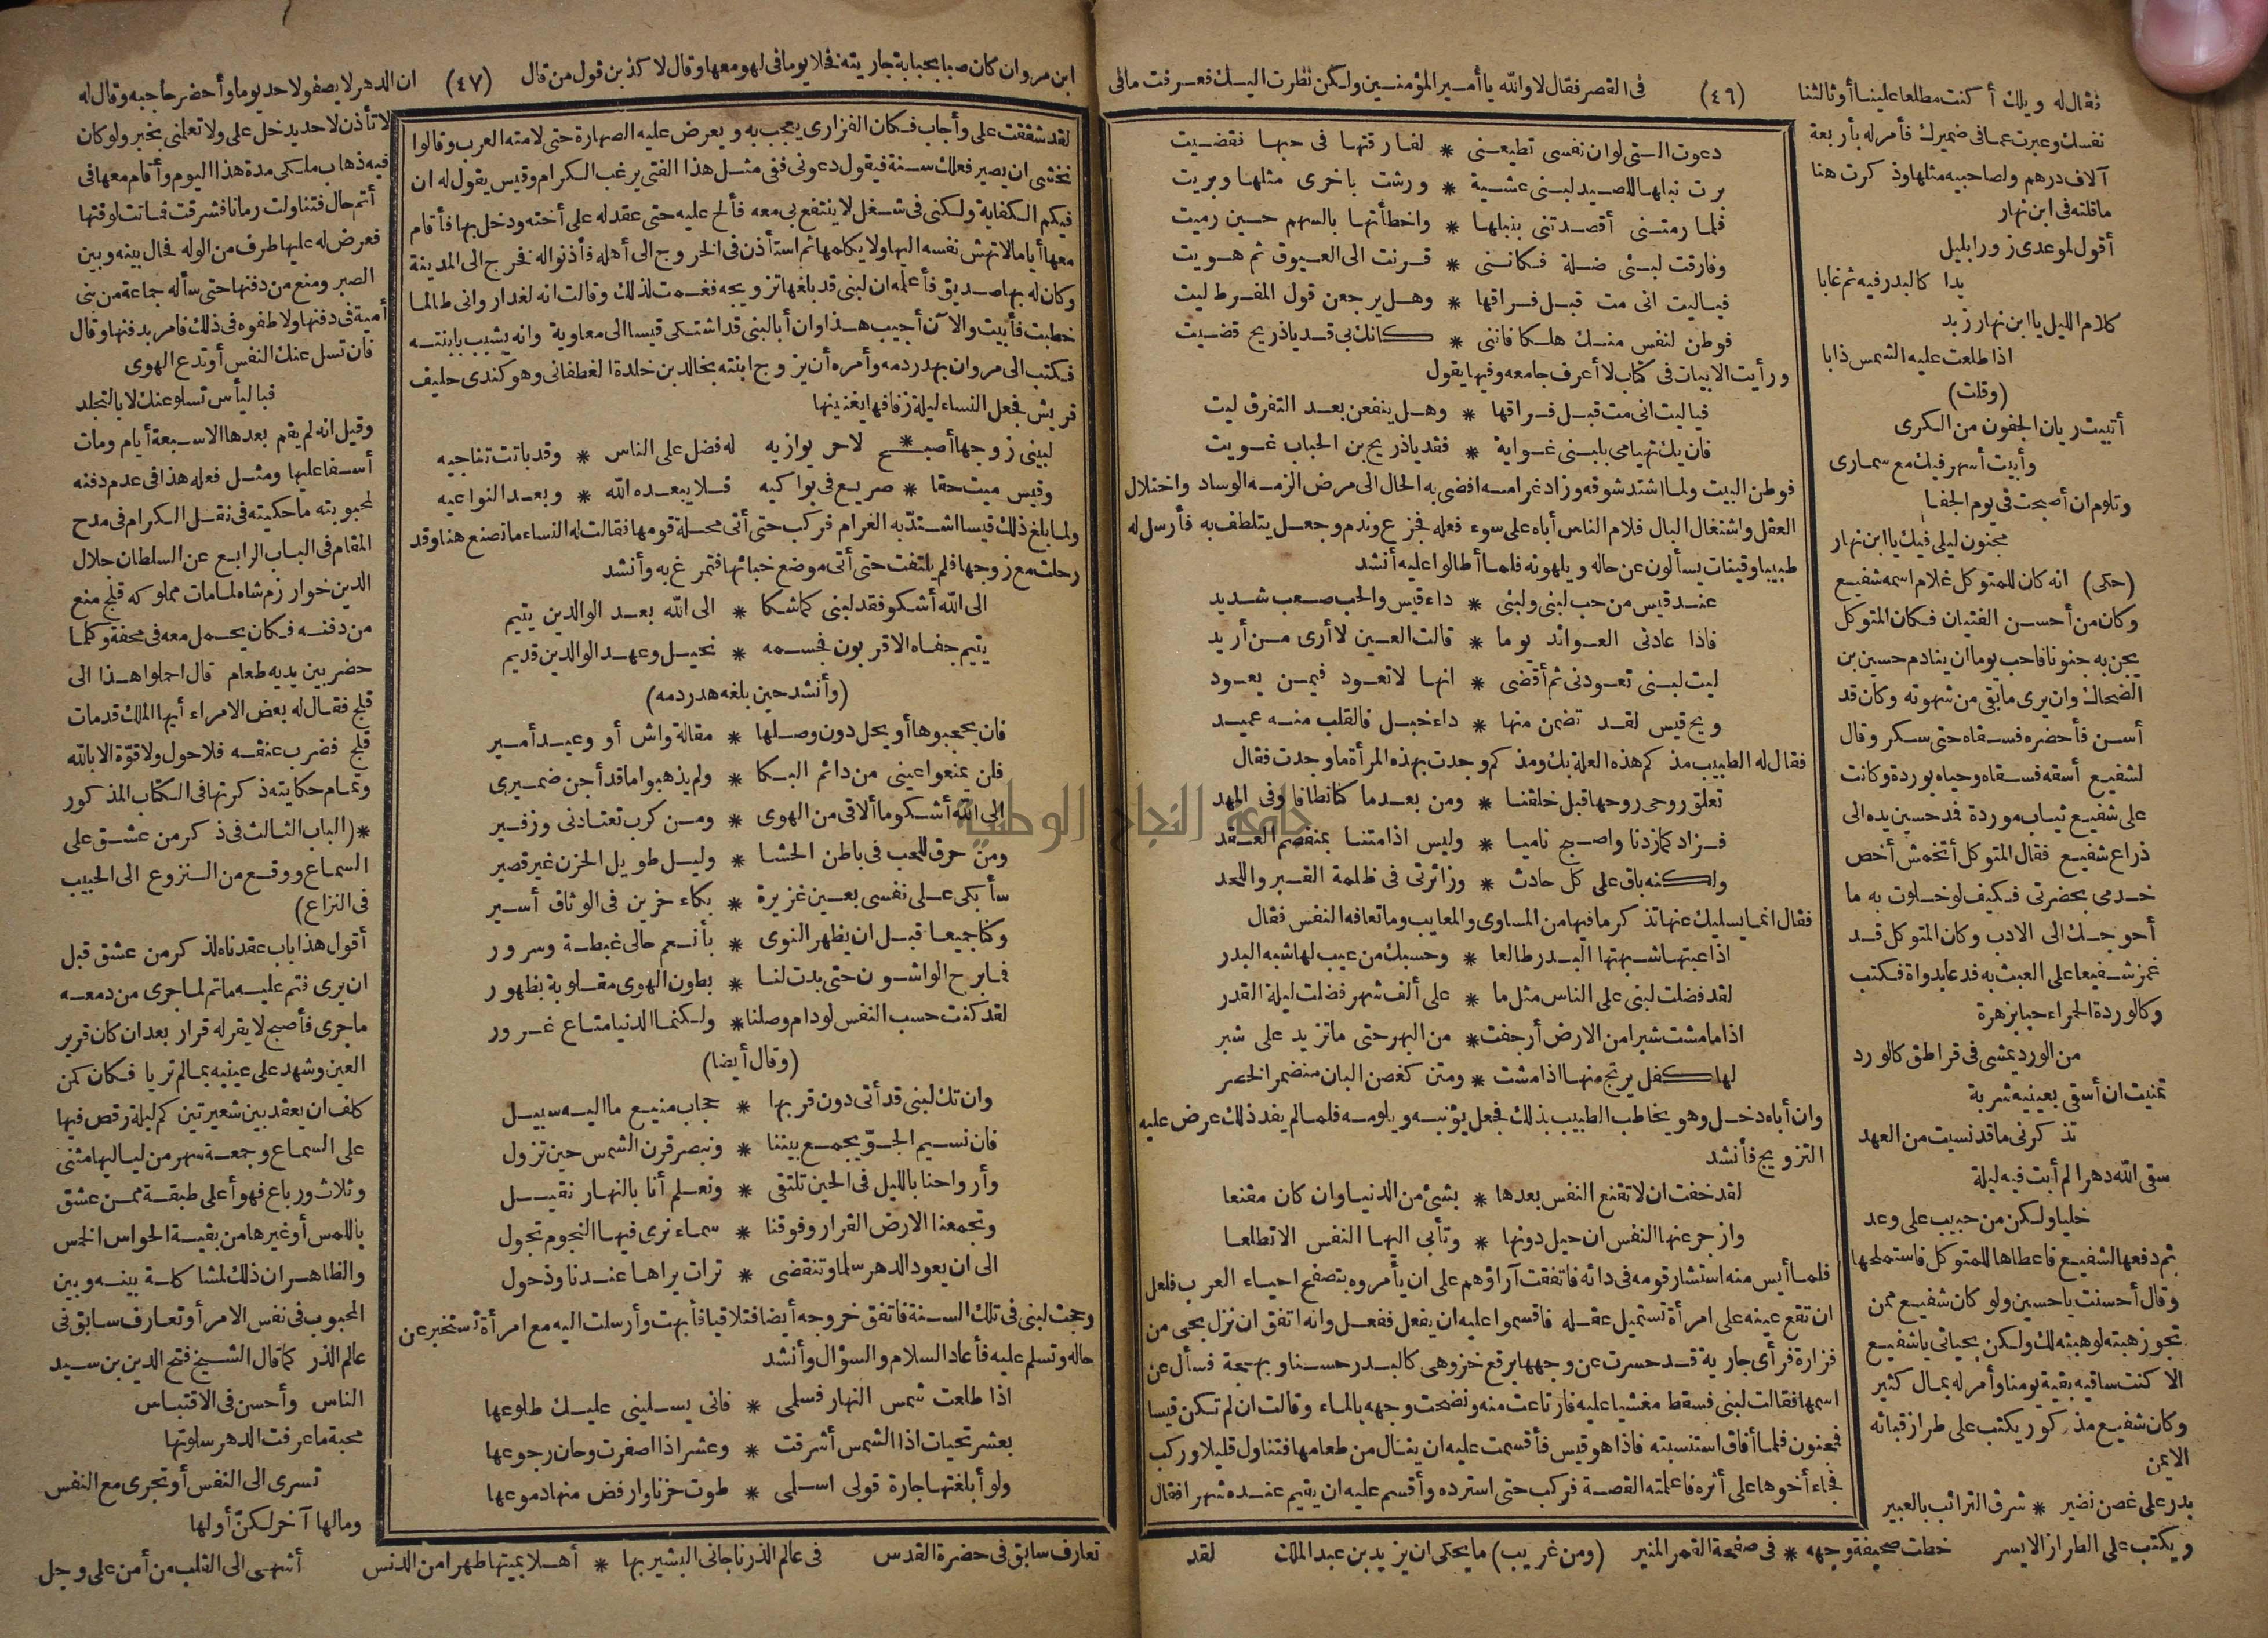 فقال له ويلك أكنت مطلعا علينا أو ثالثنا (٤٦) فى القصر فقال لا والله يا أمير المؤمنين ولكن نظرت اليك فعرفت ما فى
نفسك وعبرت عما فى ضميرك فأمر له بأربعة
آلاف درهم ولصاحبيه مثلها وذكرت هنا
ما قلته فى ابن نهار
أقول لموعدى زورا بليل
بدا كالبدر فيه ثم غابا
كلام الليل يا ابن نهار زبد
اذا طلعت عليه الشمس ذابا
(وقلت)
أتبيت ريان الجفون من الكرى
وأبيت أسهر فيك مع سمارى
وتلوم ان أصبحت فى يوم الجفا
مجنون ليلى فيك يا ابن نهار
(حكى) انه كان للمتوكل غلام اسمه شفيع
وكان من أحسن الفتيان فكان المتوكل
يجن به جنونا فاحب يوما ان ينادم حسين بن
الضحاك وان يرى ما بقى من شهوته وكان قد
أسن فأحضره فسقاه حتى سكر وقال
لشفيع أسقه فسقاه وحياه بوردة وكانت
على شفيع ثياب موردة فمد حسين يده الى
ذراع شفيع فقال المتوكل أتخمش أخص
خدمى بحضرتى فكيف لو خلوت به ما
أحوجك الى الادب وكان المتوكل قد
غمز شفيعا على العبث به فدعا بدواة فكتب
وكالوردة الحمراء حيا بزهرة
من الورد يمشى فى قراطق كالورد
تمنيت ان أسقى بعينيه شربة
تذكرنى ما قد نسيت من العهد
سقى الله دهرا لم أبت فيه ليلة
خليا ولكن من حبيب على وعد
ثم دفعها لشفيع فاعطاها للمتوكل فاستملحها
وقال أحسنت يا حسين ولو كان شفيع ممن
تجوز هبته لوهبته لك ولكن بحياتى يا شفيع
الا كنت ساقيه بقية يومنا وأمر له بمال كثير
وكان شفيع مذكور يكتب على طراز قبائه
الايمن
بدر على غصن نضير * شرق الترائب بالعبير
ويكتب على الطراز الايسر خطت صحيفة وجهه * فى صفحة القمر المنير (ومن غريب) ما يحكى ان يزيد بن عبد الملك لقد
دعوت التى لو ان نفسى تطيعنى * لفارقتها فى حبها فقضيت
برت نبلها للصيد لبنى عشية * ورشت باخرى مثلها وبريت
فلما رمتنى أقصدتنى بنبلها * واخطأتها بالسهم حين رميت
وفارقت لبنى ضلة فكاننى * قرنت الى العيوق ثم هويت
فياليت انى مت قبل فراقها * وهل يرجعن قول المفرط ليت
فوطن لنفس منك هلكا فاننى * كانك بى قد ياذريح قضيت
ورأيت الابيات فى كتاب لا أعرف جامعه وفيها يقول
فياليت انى مت قبل فراقها * وهل ينفعن بعد التفرق ليت
فان يك تهيامى بلبنى غواية * فقد ياذريح بن الحباب غويت
فوطن البيت ولما اشتد شوقه وزاد غرامه افضى به الحال الى مرض الزمه الوساد واختلال
العقل واشتغال البال فلام الناس أباه على سوء فعله فجزع وندم وجعل يتلطف به فأرسل له
طبيبا وقينات يسألون عن حاله ويلهونه فلما أطالوا عليه أنشد
عند قيس من حب لبنى ولبنى * داء قيس والحب صعب شديد
فاذا عادنى العوائد يوما * قالت العين لا أرى من أريد
ليت لبنى تعودنى ثم أقضى * انها لا تعود فيمن يعود
ويح قيس لقد تضمن منها * داء خبل فالقلب منه عميد
فقال له الطبيب مذ كم هذه العلة بك ومذ كم وجدت بهذه المرأة ما وجدت فقال
تعلق روحى روحها قبل خلقنا * ومن بعد ما كنا نطافا وفى المهد
فزاد كما زدنا واصبح ناميا * وليس اذا متنا بمنفصم العقد
ولكنه باق على كل حادث * وزائرتى فى ظلمة القبر واللحد
فقال انما يسليك عنها تذكر ما فيها من المساوى والمعايب وما تعافه النفس فقال
اذا عبتها شبهتها البدر طالعا * وحسبك من عيب لها شبه البدر
لقد فضلت لبنى على الناس مثل ما * على ألف شهر فضلت ليلة القدر
اذا ما مشت شبرا من الارض أرجفت * من البهر حتى ما تزيد على شبر
لها كفل يرتج منها اذا مشت * ومتن كغصن البان منضمر الخصر
وان أباه دخل وهو يخاطب الطبيب بذلك فجعل يؤنبه ويلومه فلما لم يفد ذلك عرض عليه
التزويج فأنشد
لقد خفت ان لا تقنع النفس بعدها * بشئ من الدنيا وان كان مقنعا
وازجر عنها النفس ان حيل دونها * وتأبى اليها النفس الا تطلعا
فلما أيس منه استشار قومه فى دائه فاتفقت آراؤهم على ان يأمروه بتصفح احياء العرب فلعل
ان تقع عينه على امرأة تستميل عقله فاقسموا عليه ان يفعل ففعل وانه اتفق ان نزل بحى من
فزارة فرأى جارية قد حسرت عن وجهها برقع خز وهى كالبدر حسنا وبهجة فسأل عن
اسمها فقالت لبنى فسقط مغشيا عليه فارتاعت منه ونضحت وجهه بالماء وقالت ان لم تكن قيسا
فمجنون فلما أفاق استنسبته فاذا هو قيس فأقسمت عليه ان ينال من طعامها فتناول قليلا وركب
فجاء أخوها على أثره فاعلمته القصة فركب حتى استرده وأقسم عليه ان يقيم عنده شهرا فقال
ابن مروان كان صبا بحبابة جاريته فخلا يوما فى لهو معها وقال لا كذبن قول من قال (٤٧) ان الدهر لا يصفو لاحد يوما وأحضر حاجبه وقال له
لقد شققت على وأجاب فكان الفزارى يعجب به ويعرض عليه الصهارة حتى لامته العرب وقالوا
نخشى ان يصير فعلك سنة فيقول دعونى ففى مثل هذا الفتى يرغب الكرام وقيس يقول له ان
فيكم الكفاية ولكنى فى شغل لا ينتفع بى معه فألح عليه حتى عقد له على أخته ودخل بها فأقام
معها أياما لا تهش نفسه اليها ولا يكلمها ثم استأذن فى الخروج الى أهله فأذنوا له فخرج الى المدينة
وكان له بها صديق فأعلمه ان لبنى قد بلغها تزويجه فغمت لذلك وقالت انه لغدار وانى طالما
خطبت فأبيت والآن أجيب هذا وان أبا لبنى قد اشتكى قيسا الى معاوية وانه يشبب بابنته
فكتب الى مروان بهدر دمه وأمره أن يزوج ابنته بخالد بن خلدة الغطفانى وهو كندى حليف
قريش فجعل النساء ليلة زفافها يغنينها
لبينى زوجها أصبح * لا حر يوازيه له فضل على الناس * وقد باتت تناجيه
وقيس ميت حقا * صريع فى بواكيه فلا يبعده الله * وبعد النواعيه
ولما بلغ ذلك قيسا اشتد به الغرام فركب حتى أتى محلة قومها فقالت له النساء ما تصنع هنا وقد
رحلت مع زوجها فلم يلتفت حتى أتى موضع خبائها فتمرغ به وأنشد
الى الله أشكو فقد لبنى كما شكا * الى الله بعد الوالدين يتيم
يتيم جفاه الاقربون فجسمه * نحيل وعهد الوالدين قديم
(وأنشد حين بلغه هدر دمه)
فان يحجبوها أو يحل دون وصلها * مقالة واش أو وعيد أمير
فلن يمنعوا عينى من دائم البكا * ولم يذهبوا ما قد أجن ضميرى
الى الله أشكو ما ألاقى من الهوى * ومن كرب تعتادنى وزفير
ومن حرق للحب فى باطن الحشا * وليل طويل الحزن غير قصير
سأبكى على نفسى بعين غزيرة * بكاء حزين فى الوثاق أسير
وكنا جميعا قبل ان يظهر النوى * بأنعم حالى غبطة وسرور
فما برح الواشون حتى بدت لنا * بطون الهوى مقلوبة بظهور
لقد كنت حسب النفس لو دام وصلنا * ولكنما الدنيا متاع غرور
(وقال أيضا)
وان تك لبنى قد أتى دون قربها * حجاب منيع ما اليه سبيل
فان نسيم الجو يجمع بيننا * ونبصر قرن الشمس حين تزول
وأرواحنا بالليل فى الحين تلتقى * ونعلم أنا بالنهار نقيل
وتجمعنا الارض القرار وفوقنا * سماء نرى فيها النجوم تجول
الى ان يعود الدهر سلما وتنقضى * ترات يراها عندنا وذحول
وحجت لبنى فى تلك السنة فاتفق خروجه أيضا فتلاقيا فأبهت وأرسلت اليه مع امرأة تستخبر عن
حاله وتسلم عليه فأعاد السلام والسؤال وأنشد
اذا طلعت شمس النهار فسلمى * فانى يسلينى عليك طلوعها
بعشر تحيات اذا الشمس أشرقت * وعشر اذا اصفرت وحان رجوعها
ولو أبلغتها جارة قولى اسلمى * طوت حزنا وارفض منها دموعها
لا تأذن لاحد يدخل على ولا تعلمنى بخبر ولو كان
فيه ذهاب ملكى مدة هذا اليوم وأقام معها فى
أتم حال فتناولت رمانا فشرقت فماتت لوقتها
فعرض له عليها طرف من الوله فحال بينه وبين
الصبر ومنع من دفنها حتى سأله جماعة من بنى
أمية فى دفنها ولاطفوه فى ذلك فامر بدفنها وقال
فان تسل عنك النفس أو تدع الهوى
فباليأس تسلو عنك لا بالتجلد
وقيل انه لم يقم بعدها الا سبعة أيام ومات
أسفا عليها ومثل فعله هذا فى عدم دفنه
لمحبوبته ما حكيته فى نقل الكرام فى مدح
المقام فى الباب الرابع عن السلطان جلال
الدين خوارزم شاه لما مات مملوكه قلج منع
من دفنه فكان يحمل معه فى محفة وكلما
حضر بين يديه طعام قال احملوا هذا الى
قلج فقال له بعض الامراء أيها الملك قد مات
قلج فضرب عنقه فلا حول ولا قوة الا بالله
وتمام حكايته ذكرتها فى الكتاب المذكور
*(الباب الثالث فى ذكر من عشق على
السماع ووقع من النزوع الى الحبيب
فى النزاع)
أقول هذا باب عقدناه لذكر من عشق قبل
ان يرى فتم عليه ما تم لما جرى من دمعه
ما جرى فأصبح لا يقر له قرار بعد ان كان قرير
العين وشهد على عينيه بما لم تريا فكان كمن
كلف ان يعقد بين شعيرتين كم ليلة رقص فيها
على السماع وجمعة سهر من لياليها مثنى
وثلاث ورباع فهو أعلى طبقة ممن عشق
باللمس أو غيرها من بقية الحواس الخمس
والظاهر ان ذلك لمشاكلة بينه وبين
المحبوب فى نفس الامر أو تعارف سابق فى
عالم الذر كما قال الشيخ فتح الدين بن سيد
الناس وأحسن فى الاقتباس
محبة ما عرفت الدهر سلوتها
تسرى الى النفس أو تجرى مع النفس
وما لها آخر لكن أولها
تعارف سابق فى حضرة القدس فى عالم الذر ناجانى البشير بها * أهلا بميتها طهرا من الدنس أشهى الى القلب من أمن على وجل
جامعة النجاح الوطنية